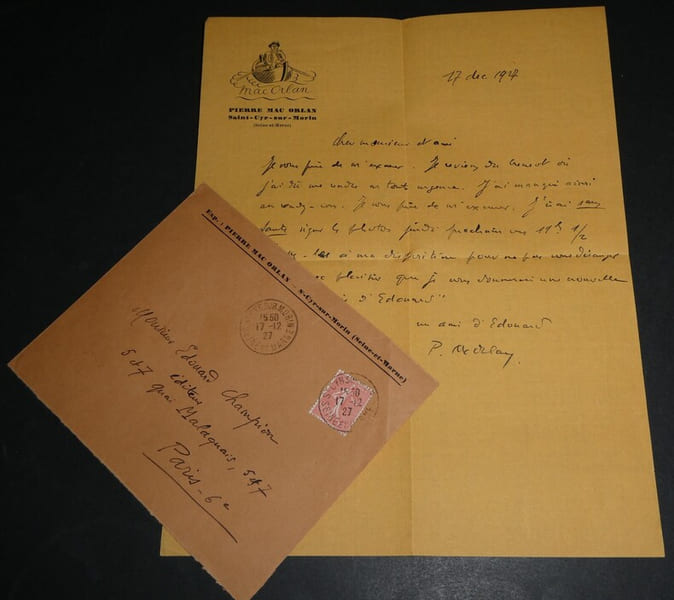 Mac Orlan
PIERRE MAC ORLAN
Saint-Cyr-sur-Morin
(Seine-et-Marne)
17 dec 1927
cher monsieur et ami
Je vous prie de m'excuser. Je reviens du Creusot où
j'ai dû me rendre en toute urgence. J'ai manqué ainsi
au rendez-vous. Je vous prie de m'excuser. J'irai sans
faute signer les photos jeudi prochain vers 11h 1/2
à ma disposition pour ne pas vous déranger
plaisir que je vous donnerai une nouvelle
d'Edouard"
un ami d'Edouard
P. Mac Orlan
Exp.: PIERRE MAC ORLAN - St-Cyr-sur-Morin (Seine-et-Marne)
15 50
17-12
27
15 50
17-12
27
Monsieur Edouard Champion
éditeur
5 et 7 quai Malaquais, 5 et 7
Paris-6e